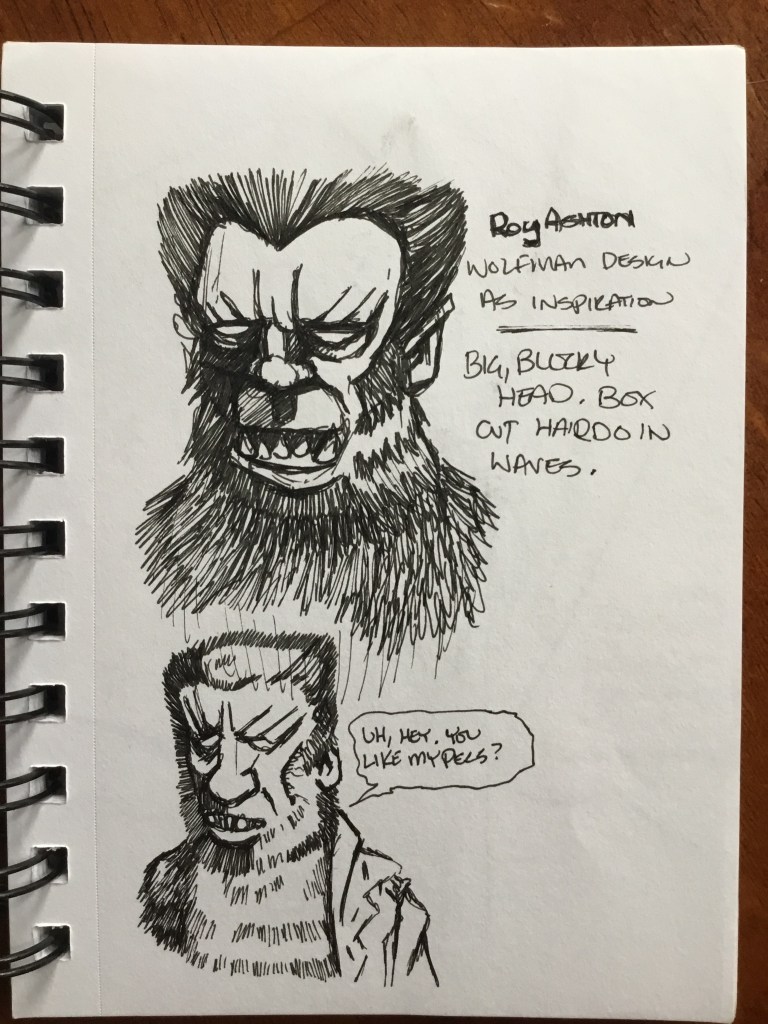 ROY ASHTON
WOLFMAN DESIGN
AS INSPIRATION
BIG, BLOCKY
HEAD. BOX
CUT HAIRDO IN
WAVES.
UH, HEY. YOU
LIKE MY PECS?